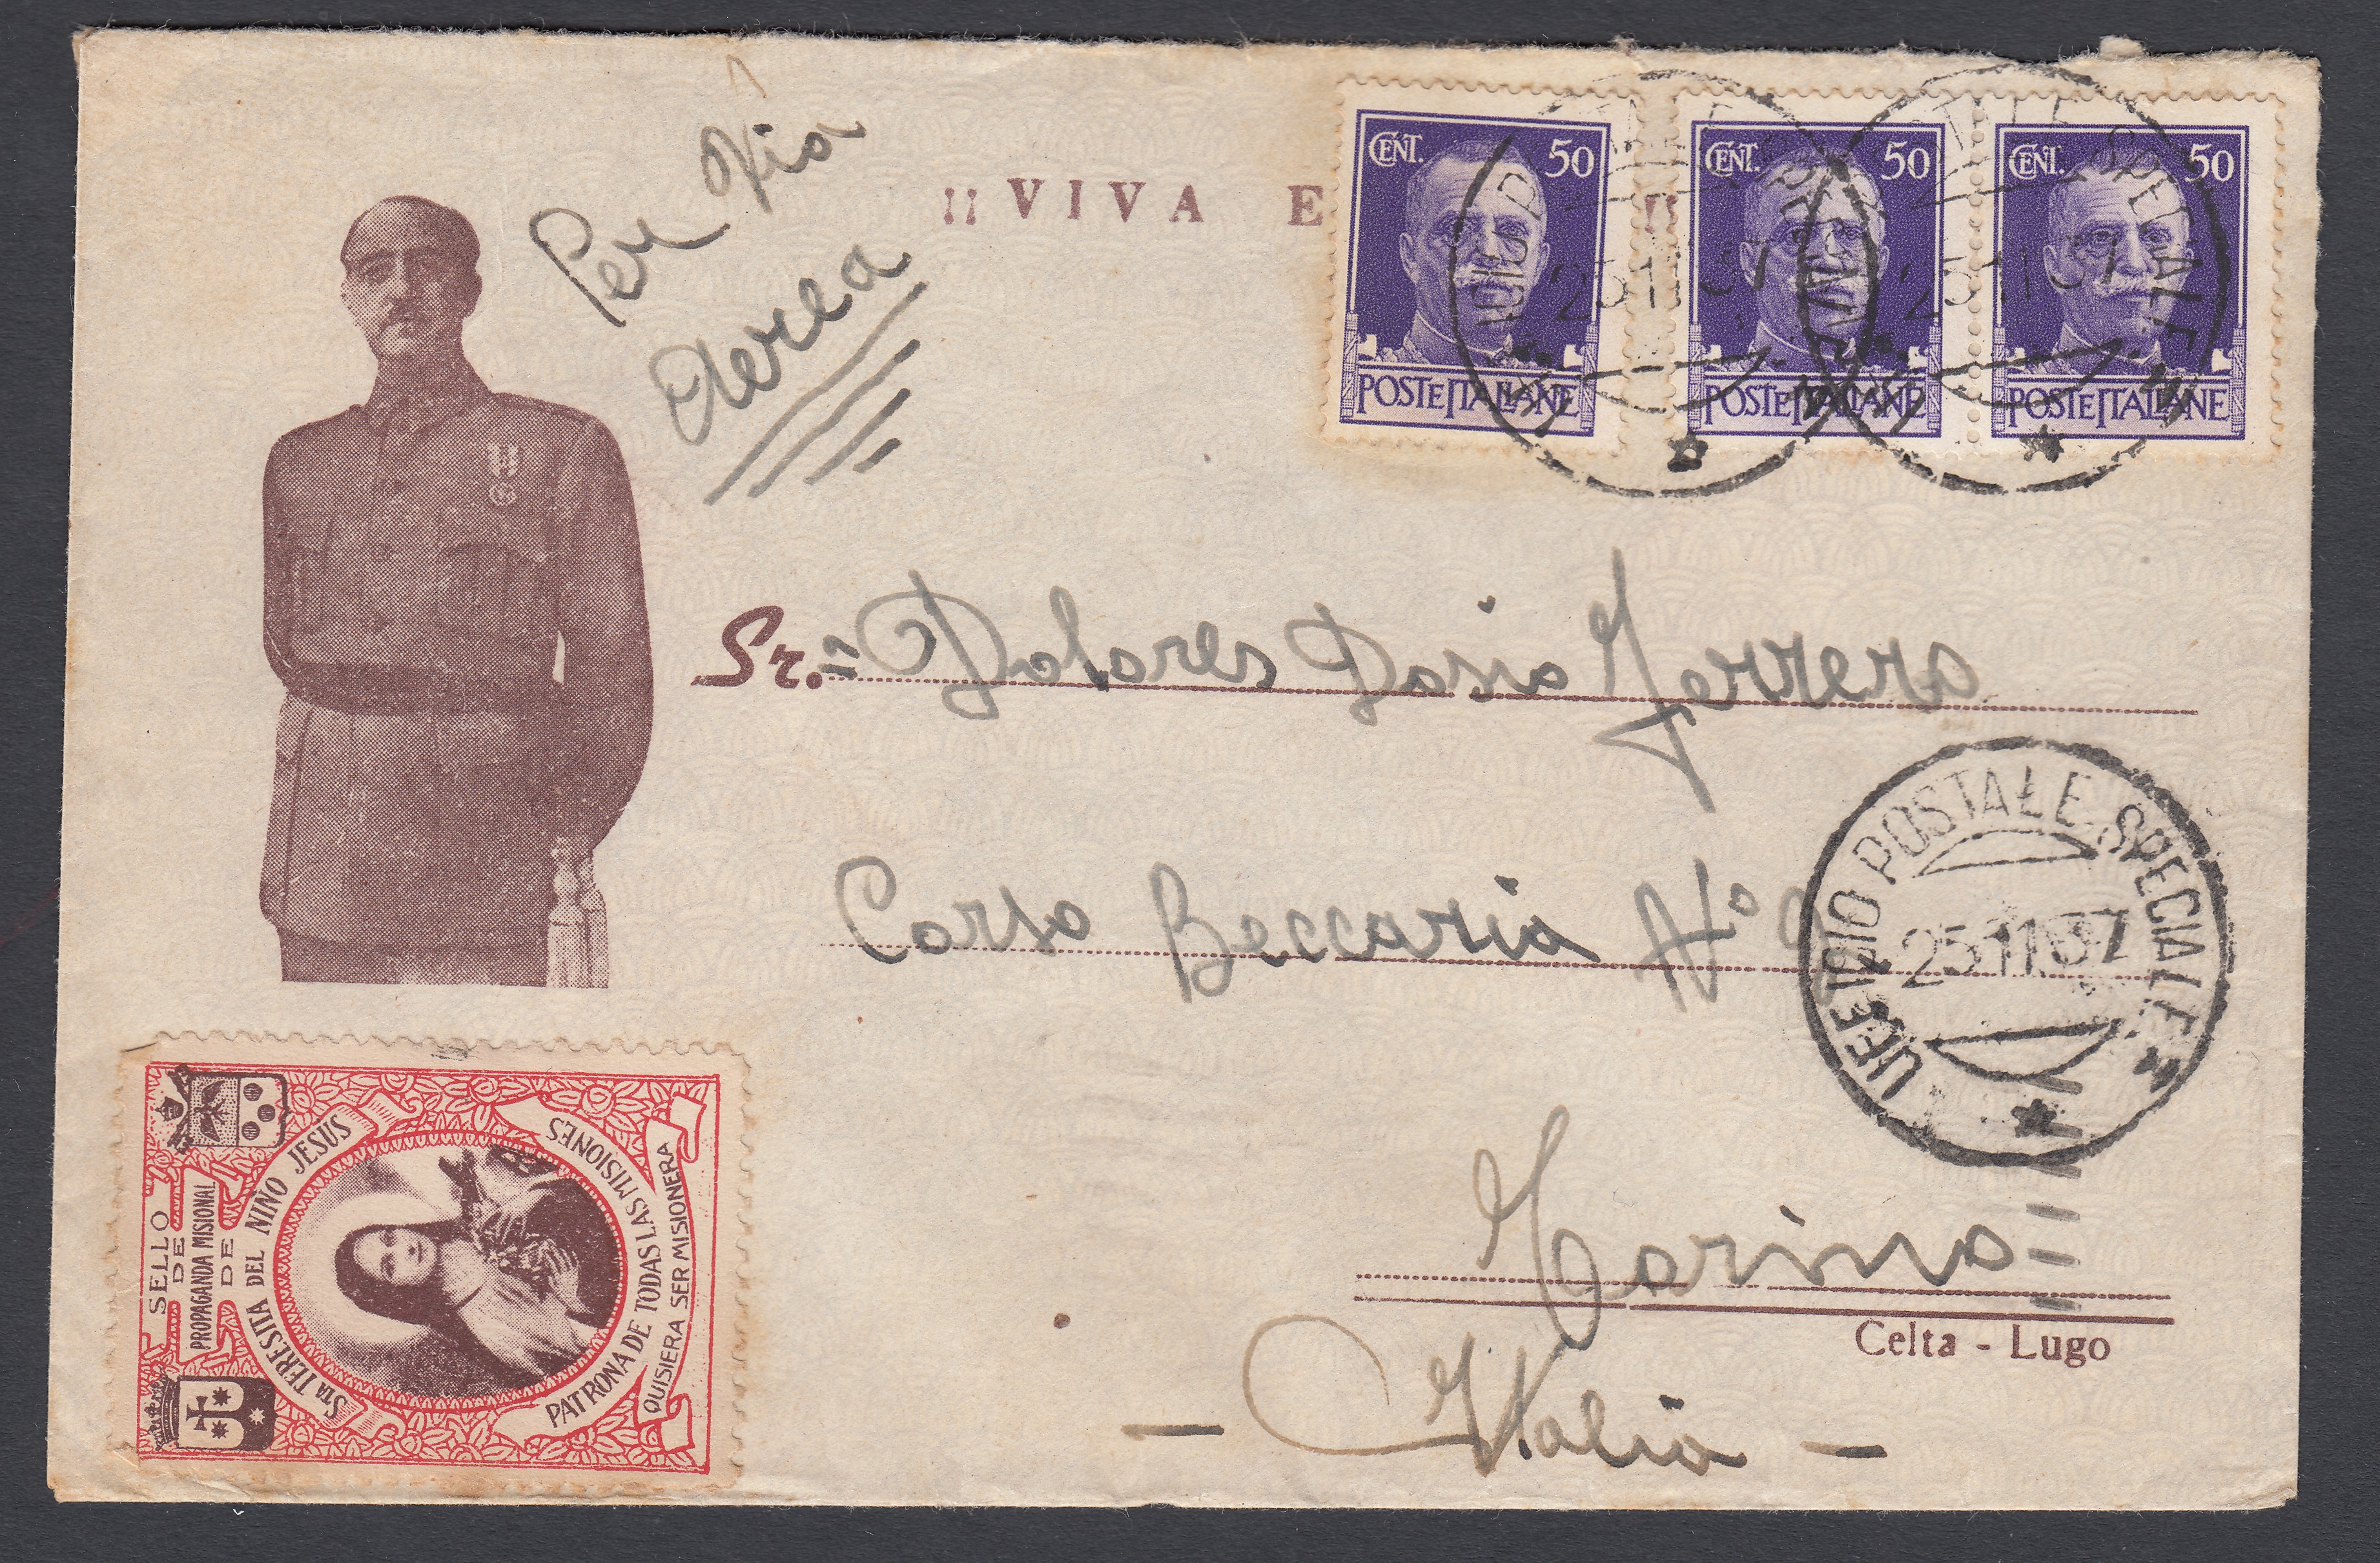 Per Via
Aerea
¡¡ VIVA E
CENT. 50
POSTE ITALIANE
CENT. 50
POSTE ITALIANE
CENT. 50
POSTE ITALIANE
UFFICIO POSTALE SPECIALE
25.11.37
UFFICIO POSTALE SPECIALE
25.11.37
Sr.ª Dolores Dosio Ferrero
Corso Beccaria Nº 9
UFFICIO POSTALE SPECIALE
25.11.37
Torino
Celta - Lugo
- Italia -
SELLO
DE
PROPAGANDA MISIONAL
DE
STA TERESITA DEL NIÑO JESUS
PATRONA DE TODAS LAS MISIONES
QUISIERA SER MISIONERA